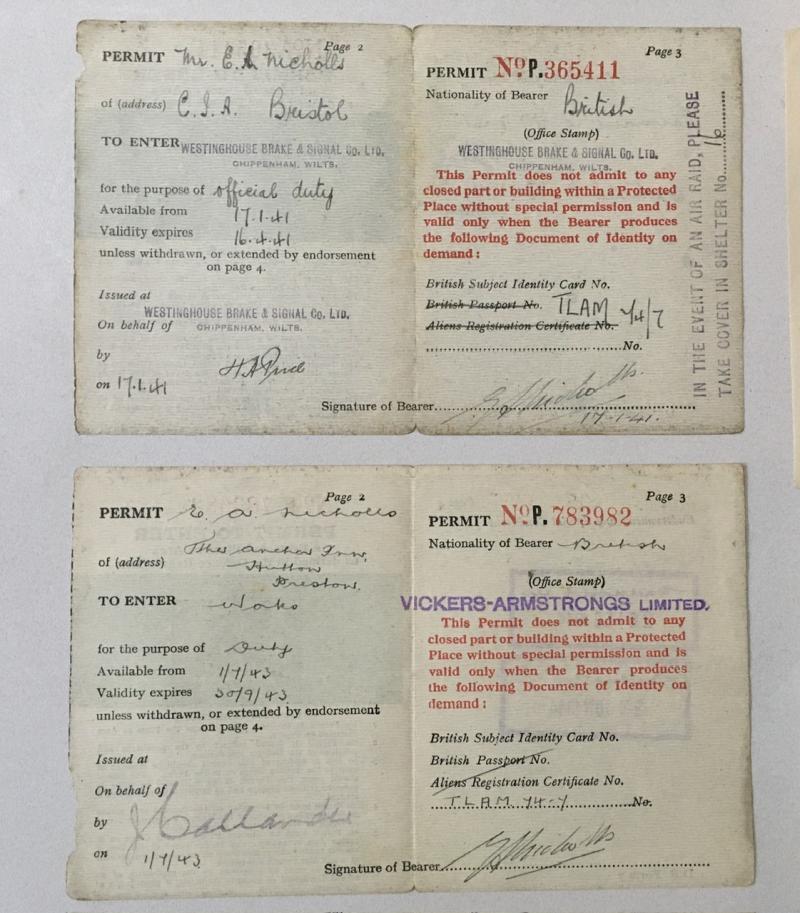 Page 2
PERMIT Mr. E. A. Nicholls
of (address) C.I.A. Bristol
TO ENTER WESTINGHOUSE BRAKE & SIGNAL Co. LTD.
CHIPPENHAM, WILTS.
for the purpose of official duty
Available from 17.1.41
Validity expires 16.4.41
unless withdrawn, or extended by endorsement
on page 4.
Issued at
WESTINGHOUSE BRAKE & SIGNAL Co. LTD.
On behalf of CHIPPENHAM, WILTS.
by
on 17.1.41
Page 3
PERMIT No P.365411
Nationality of Bearer British
(Office Stamp)
WESTINGHOUSE BRAKE & SIGNAL Co. LTD.
CHIPPENHAM, WILTS.
This Permit does not admit to any
closed part or building within a Protected
Place without special permission and is
valid only when the Bearer produces
the following Document of Identity on
demand:
British Subject Identity Card No.
British Passport No. TLAM 74/7
Aliens Registration Certificate No.
No.
Signature of Bearer E A Nicholls
17-1-41.
IN THE EVENT OF AN AIR RAID, PLEASE
TAKE COVER IN SHELTER No. 16
Page 2
PERMIT E. A. Nicholls
of (address) The Anchor Inn,
Hutton
Preston.
TO ENTER Works
for the purpose of Duty
Available from 1/7/43
Validity expires 30/9/43
unless withdrawn, or extended by endorsement
on page 4.
Issued at
On behalf of
by
on 1/7/43
Page 3
PERMIT No P. 783982
Nationality of Bearer British
(Office Stamp)
VICKERS-ARMSTRONGS LIMITED.
This Permit does not admit to any
closed part or building within a Protected
Place without special permission and is
valid only when the Bearer produces
the following Document of Identity on
demand:
British Subject Identity Card No.
British Passport No.
Aliens Registration Certificate No.
TLAM 74-7 No.
Signature of Bearer E A Nicholls